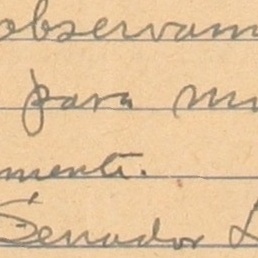 observam
para mu
mente.
Senador L